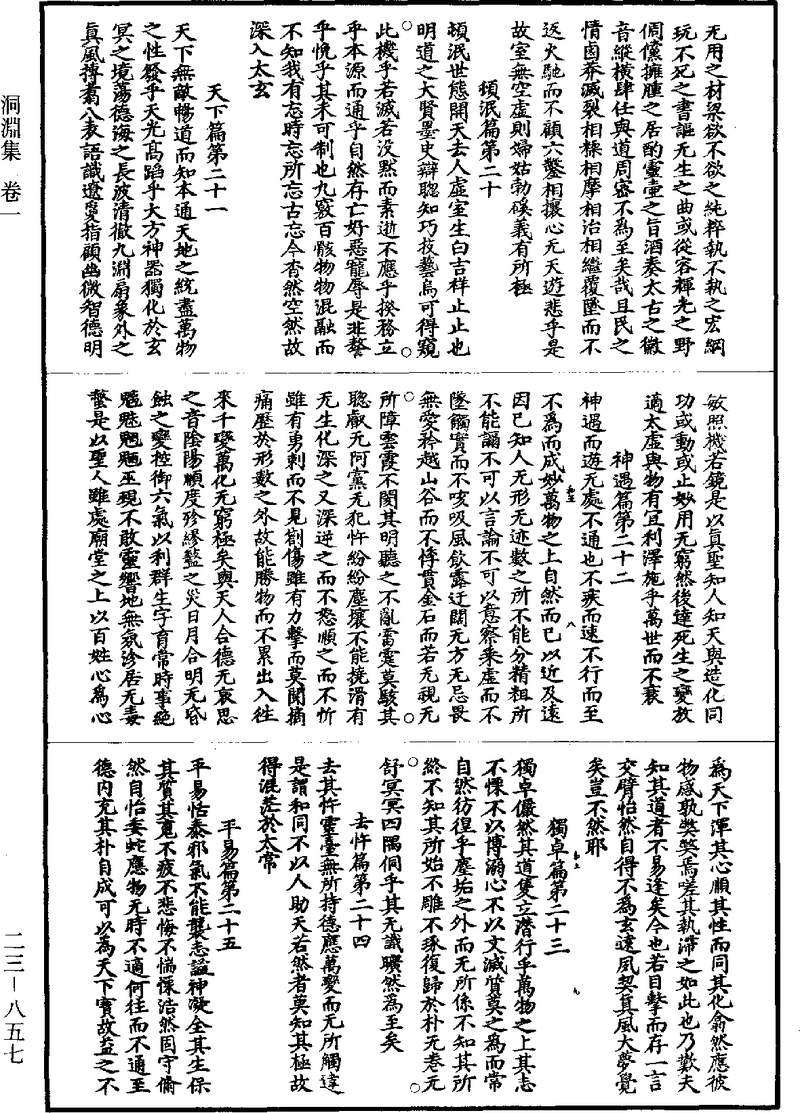 无用之材梁欲不欲之純粹執不執之宏綱
玩不死之書謳无生之曲或從容輝光之野
倜儻擁腫之居酌靈壷之旨酒奏太古之徽
音縱橫肆仕與道周密不為至矣哉且民之
情鹵莽滅裂相糅相摩相治相繼覆墜而不
返火馳而不顧六鑿相攘心无天遊悲乎是
故室無空虛則婦姑勃磎義有所極
頓泯篇第二十
頓泯世態開天去人虛室生白吉祥止止也
明道之大賢墨史辯聦知巧技藝烏可得窺
此機乎若滅若没黙而素逝不應乎揆務立
乎本源而通乎自然存亡好惡寵辱是非䥝
乎悗乎其未可制也九竅百骸物物混融而
不知我有忘時忘所忘古忘今杳然空然故
深入太玄
天下篇第二十一
天下無敵暢道而知本通天地之統盡萬物
之性發乎天光高蹈乎大方神器獨化於玄
冥之境蕩德海之長波清徹九淵扇象外之
真風摶翥八表語識遼夐指顧幽微智德明
敏照機若鏡是以真聖知人知天與造化同
功或動或止妙用无窮然後達死生之變放
適太虛與物有宜利澤施乎萬世而不衰
神遇篇第二十二
神遇而遊无處不通也不疾而速不行而至
不為而成妙萬物之上自然而已以近及遠
因已知人无形无迹數之所不能分精粗所
不能論不可以言論不可以意察乘虛而不
墜觸實而不咳吸風飲露迂闊无方无忌畏
無愛矜越山谷而不悸貫金石而若无視无
所障雲霞不閡其明聽之不亂雷霆莫駭其
聦厭无阿黨无犯忤紛紛塵壤不能撓滑有
无生化深之又深逆之而不怒順之而不忻
雖有勇刺而不見創傷雖有力擊而莫聞㾓
痛歷於形數之外故能勝物而不累出入往
來千變萬化无窮極矣與天人合德无哀思
之音陰陽順度殄繆盭之災日月合明无昏
蝕之變控御六氣以利群生字育常時事絶
魑魅魍魎巫覡不敢靈響地無氛沴居无毒
螫是以聖人雖處廟堂之上以百姓心為心
為天下渾其心順其性而同其化翕然應彼
物感孰弊弊焉嗟其執滯之如此也乃歎夫
知其道者不易逢矣今也若目擊而存一言
交臂怡然自得不為玄遠夙契真風大夢覺
矣豈不然耶
獨卓篇第二十三
獨卓儼然其道隻立潜行乎萬物之上其志
不慄不以博溺心不以文滅質莫之為而常
自然彷徨乎塵垢之外而无所係不知其所
終不知其所始不雕不琢復歸於朴无卷无
舒冥冥四隅侗乎其无識曠然為至矣
去忤篇第二十四
去其忤靈臺無所持德應萬變而无所觸違
是謂和同不以人助天若然者莫知其極故
得混茫於太常
平易篇第二十五
平易恬泰邪氣不能襲志謐神凝全其生保
其質其寬不疲不悲悔不惴慄浩然固守翛
然自怡委蛇應物无時不適何往而不通至
德内充其朴自成可以為天下寳故益之不
洞淵集 卷一
二三—八五七